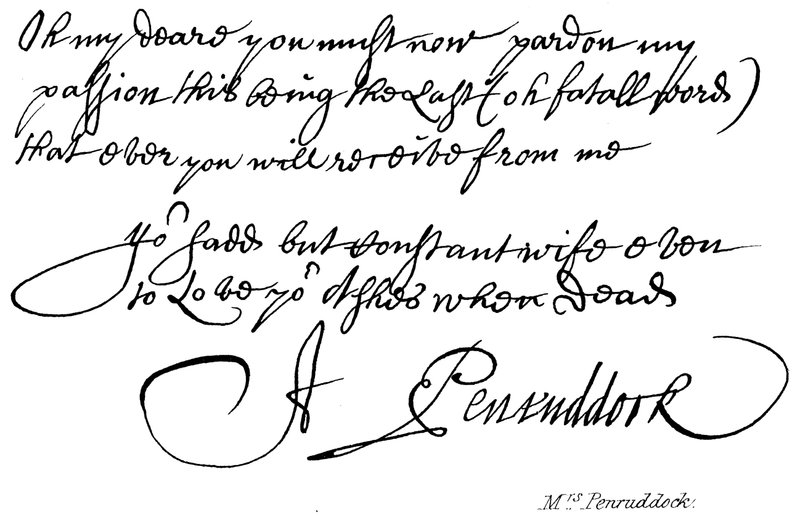 Oh my deare you must now pardon my
passion this being the Last (oh fatall word)
that ever you will receive from me
yor sadd but constant wife even
to Love yor Ashes when dead
A Penruddock
Mrs Penruddock.